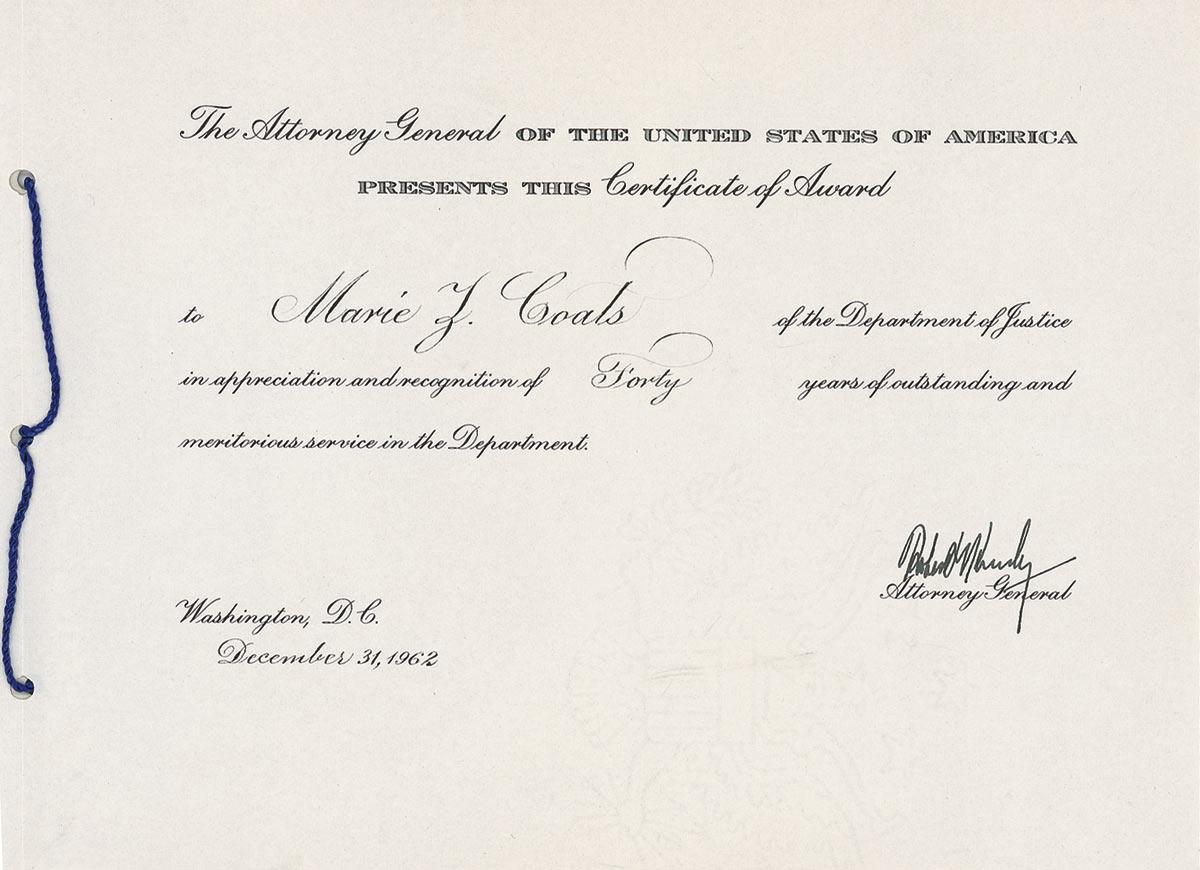 The Attorney General OF THE UNITED STATES OF AMERICA
PRESENTS THIS Certificate of Award
to Marie Z. Coals of the Department of Justice
in appreciation and recognition of Forty years of outstanding and
meritorious service in the Department.
Robert Kennedy
Attorney General
Washington, D.C.
December 31, 1962